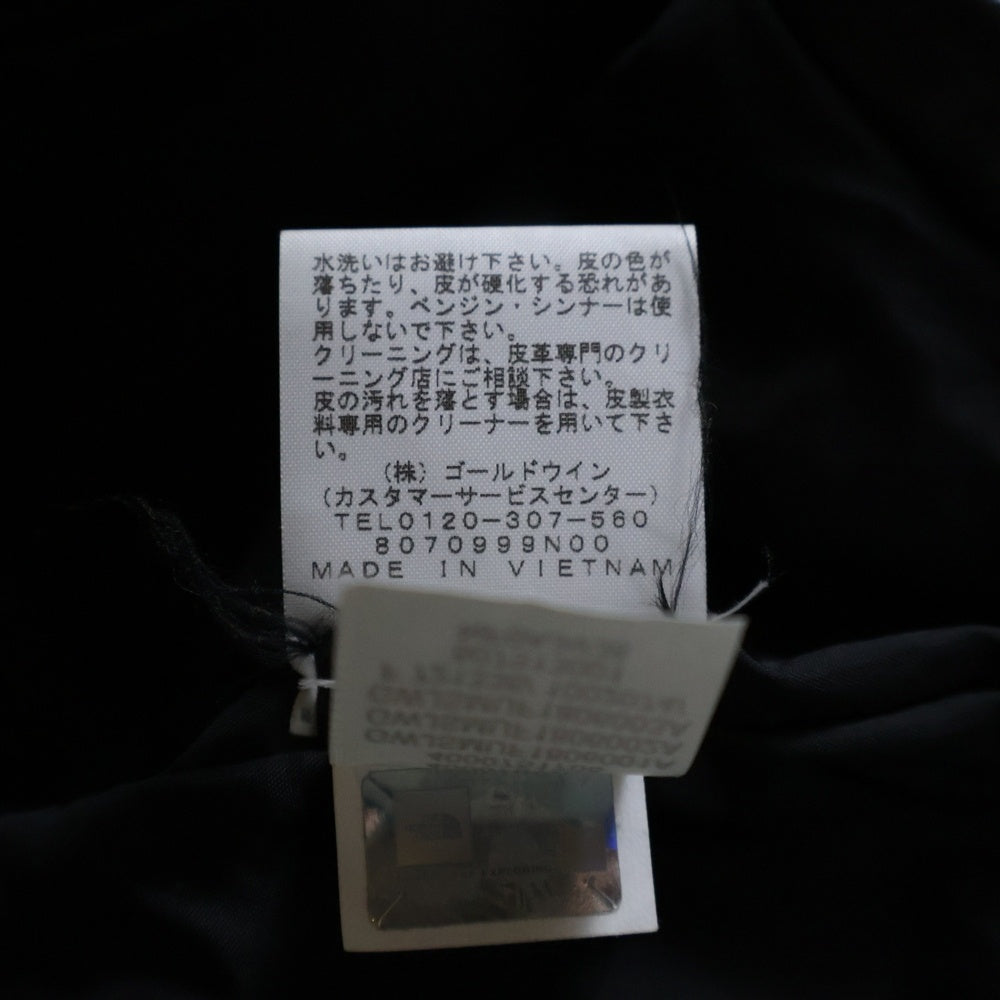 水洗いはお避け下さい。皮の色が
落ちたり、皮が硬化する恐れがあ
ります。ベンジン・シンナーは使
用しないで下さい。
クリーニングは、皮革専門のクリ
ーニング店にご相談下さい。
皮の汚れを落とす場合は、皮製衣
料専用のクリーナーを用いて下さ
い。
(株)ゴールドウイン
(カスタマーサービスセンター)
TEL0120-307-560
8070999N00
MADE IN VIETNAM